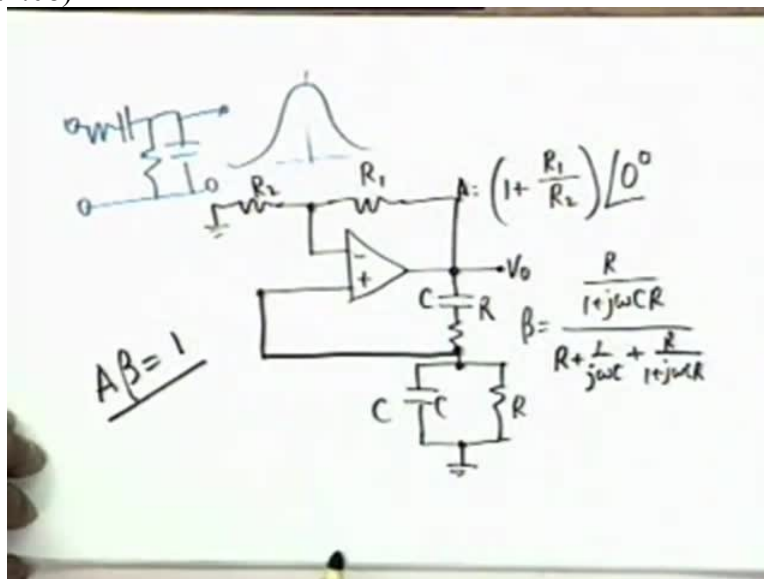 R₂
R₁
A = (1 + R₁/R₂) ∠0°
-
+
V₀
C
R
β = (R/(1+jωCR)) / (R + 1/jωC + R/(1+jωCR))
Aβ = 1
C
R